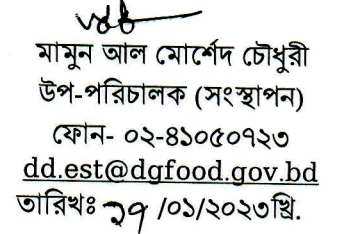 মামুন আল মোর্শেদ চৌধুরী
উপ-পরিচালক (সংস্থাপন)
ফোন- ০২-৪১০৫০৭২৩
dd.est@dgfood.gov.bd
তারিখঃ ১৭ /০১/২০২৩খ্রি.